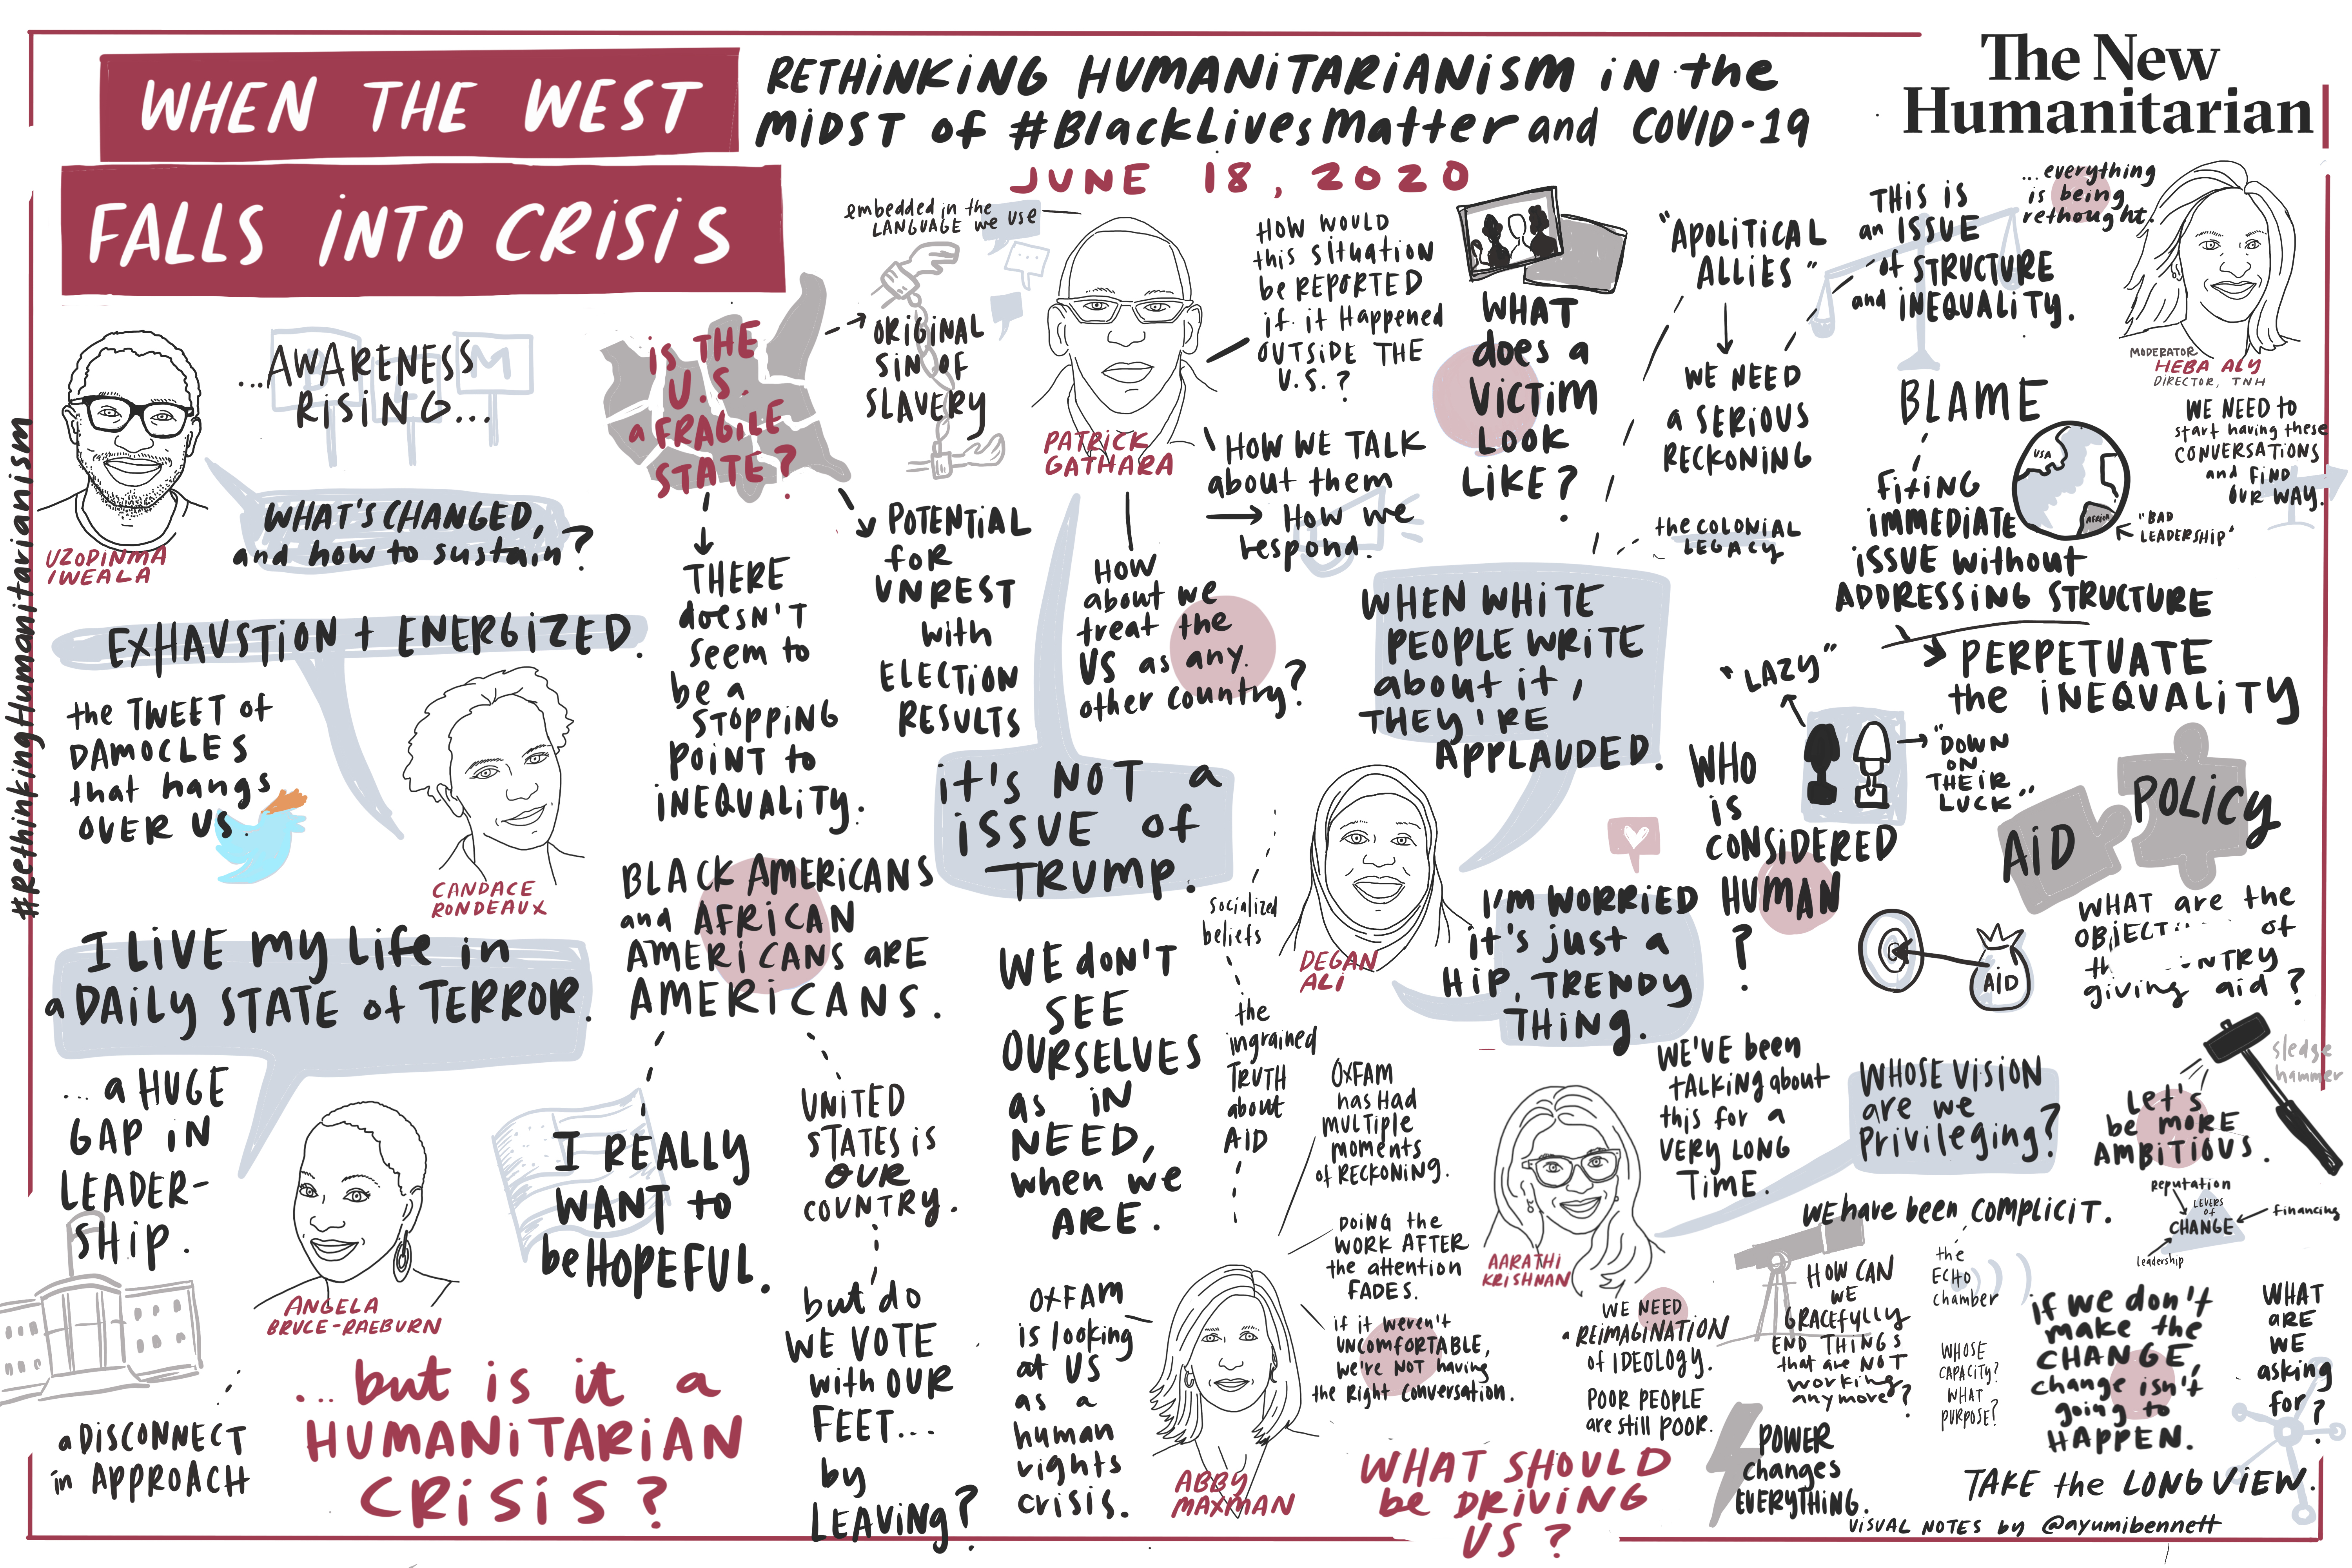 WHEN THE WEST
FALLS INTO CRISIS
RETHINKING HUMANITARIANISM IN the
MIDST of #BlackLivesMatter and COVID-19
JUNE 18, 2020
The New
Humanitarian
#RethinkingHumanitarianism
UZODINMA
IWEALA
...AWARENESS
RISING...
WHAT'S CHANGED,
and how to sustain?
EXHAUSTION + ENERGIZED.
the TWEET of
DAMOCLES
that hangs
OVER US.
CANDACE
RONDEAUX
I LIVE my life in
a DAILY STATE of TERROR.
... a HUGE
GAP IN
LEADER-
SHIP.
ANGELA
BRUCE-RAEBURN
a DISCONNECT
in APPROACH
... but is it a
HUMANITARIAN
CRISIS?
IS THE
U.S.
a FRAGILE
STATE?
ORIGINAL
SIN OF
SLAVERY
embedded in the
LANGUAGE we use
THERE
doesn't
seem to
be a
STOPPING
POINT to
INEQUALITY.
POTENTIAL
for
UNREST
with
ELECTION
RESULTS
BLACK AMERICANS
and AFRICAN
AMERICANS ARE
AMERICANS.
I REALLY
WANT to
be HOPEFUL.
UNITED
STATES is
OUR
COUNTRY.
but do
WE VOTE
with OUR
FEET...
by
LEAVING?
PATRICK
GATHARA
HOW WOULD
this situation
be REPORTED
if it Happened
OUTSIDE THE
U.S.?
HOW WE TALK
about them
How we
respond.
HOW
about we
treat the
US as any
other country?
it's NOT a
ISSUE of
TRUMP.
WE don't
SEE
OURSELVES
as IN
NEED,
when we
ARE.
OXFAM
is looking
at US
as a
human
rights
crisis.
ABBY
MAXMAN
WHAT
does a
VICTIM
LOOK
LIKE?
"APOLITICAL
ALLIES"
WE NEED
a SERIOUS
RECKONING
the COLONIAL
LEGACY
WHEN WHITE
PEOPLE WRITE
about it,
THEY'RE
APPLAUDED.
DEGAN
ALI
I'M WORRIED
it's just a
HIP, TRENDY
THING.
socialized
beliefs
the
ingrained
TRUTH
about
AID
OXFAM
has Had
MULTIPLE
moments
of RECKONING.
DOING the
WORK AFTER
the attention
FADES.
if it weren't
UNCOMFORTABLE,
we're NOT having
the Right Conversation.
WHAT SHOULD
be DRIVING
US?
THIS IS
an ISSUE
of STRUCTURE
and INEQUALITY.
... everything
is being
rethought.
MODERATOR
HEBA ALY
DIRECTOR, TNH
WE NEED to
start having these
CONVERSATIONS
and FIND
OUR WAY.
BLAME
fixing
IMMEDIATE
ISSUE without
ADDRESSING STRUCTURE
USA
AFRICA
"BAD
LEADERSHIP"
PERPETUATE
the INEQUALITY
"LAZY"
"DOWN
ON
THEIR
LUCK"
WHO
IS
CONSIDERED
HUMAN
?
AID
POLICY
AID
WHAT are the
of
giving aid?
WE'VE been
talking about
this for a
VERY LONG
TIME.
AARATHI
KRISHNAN
WHOSE VISION
are we
Privileging?
sledge
hammer
Let's
be MORE
AMBITIOUS.
Reputation
LEVERS
of
CHANGE
financing
leadership
WE have been COMPLICIT.
WE NEED
a REIMAGINATION
of IDEOLOGY.
POOR PEOPLE
are still POOR.
HOW CAN
WE
GRACEFULLY
END THINGS
that are NOT
working
anymore?
the
ECHO
chamber
WHOSE
CAPACITY?
WHAT
PURPOSE?
POWER
changes
EVERYTHING.
if we don't
make the
CHANGE,
change isn't
going to
HAPPEN.
WHAT
ARE
WE
asking
for?
TAKE the LONG VIEW.
VISUAL NOTES by @ayumibennett